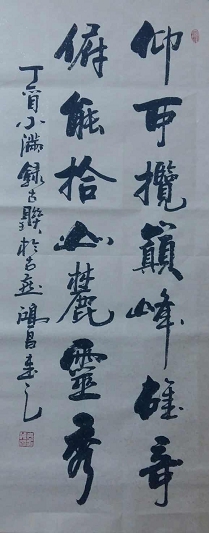 仰可攬巔峰雄奇
俯能拾山麓靈秀
丁酉小滿錄古聯於古